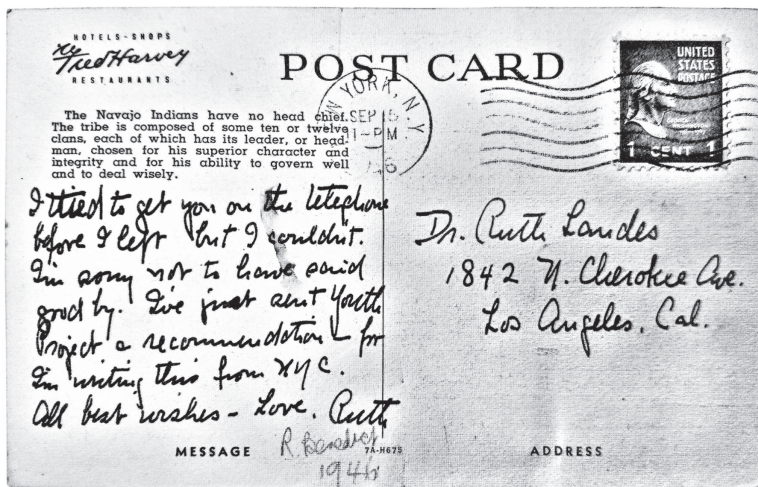 HOTELS-SHOPS
Fred Harvey
RESTAURANTS
POST CARD
UNITED
STATES
POSTAGE
1 CENT 1
NEW YORK, N.Y.
SEP 15
1-PM
1946
The Navajo Indians have no head chief.
The tribe is composed of some ten or twelve
clans, each of which has its leader, or head-
man, chosen for his superior character and
integrity and for his ability to govern well
and to deal wisely.
I tried to get you on the telephone
before I left but I couldn't.
I'm sorry not to have said
good by. I've just sent Youth
Project a recommendation – for
I'm writing this from NYC.
All best wishes – Love, Ruth
Dr. Ruth Landes
1842 N. Cherokee Ave.
Los Angeles, Cal.
MESSAGE
R. Benedict
1946
7A-H675
ADDRESS